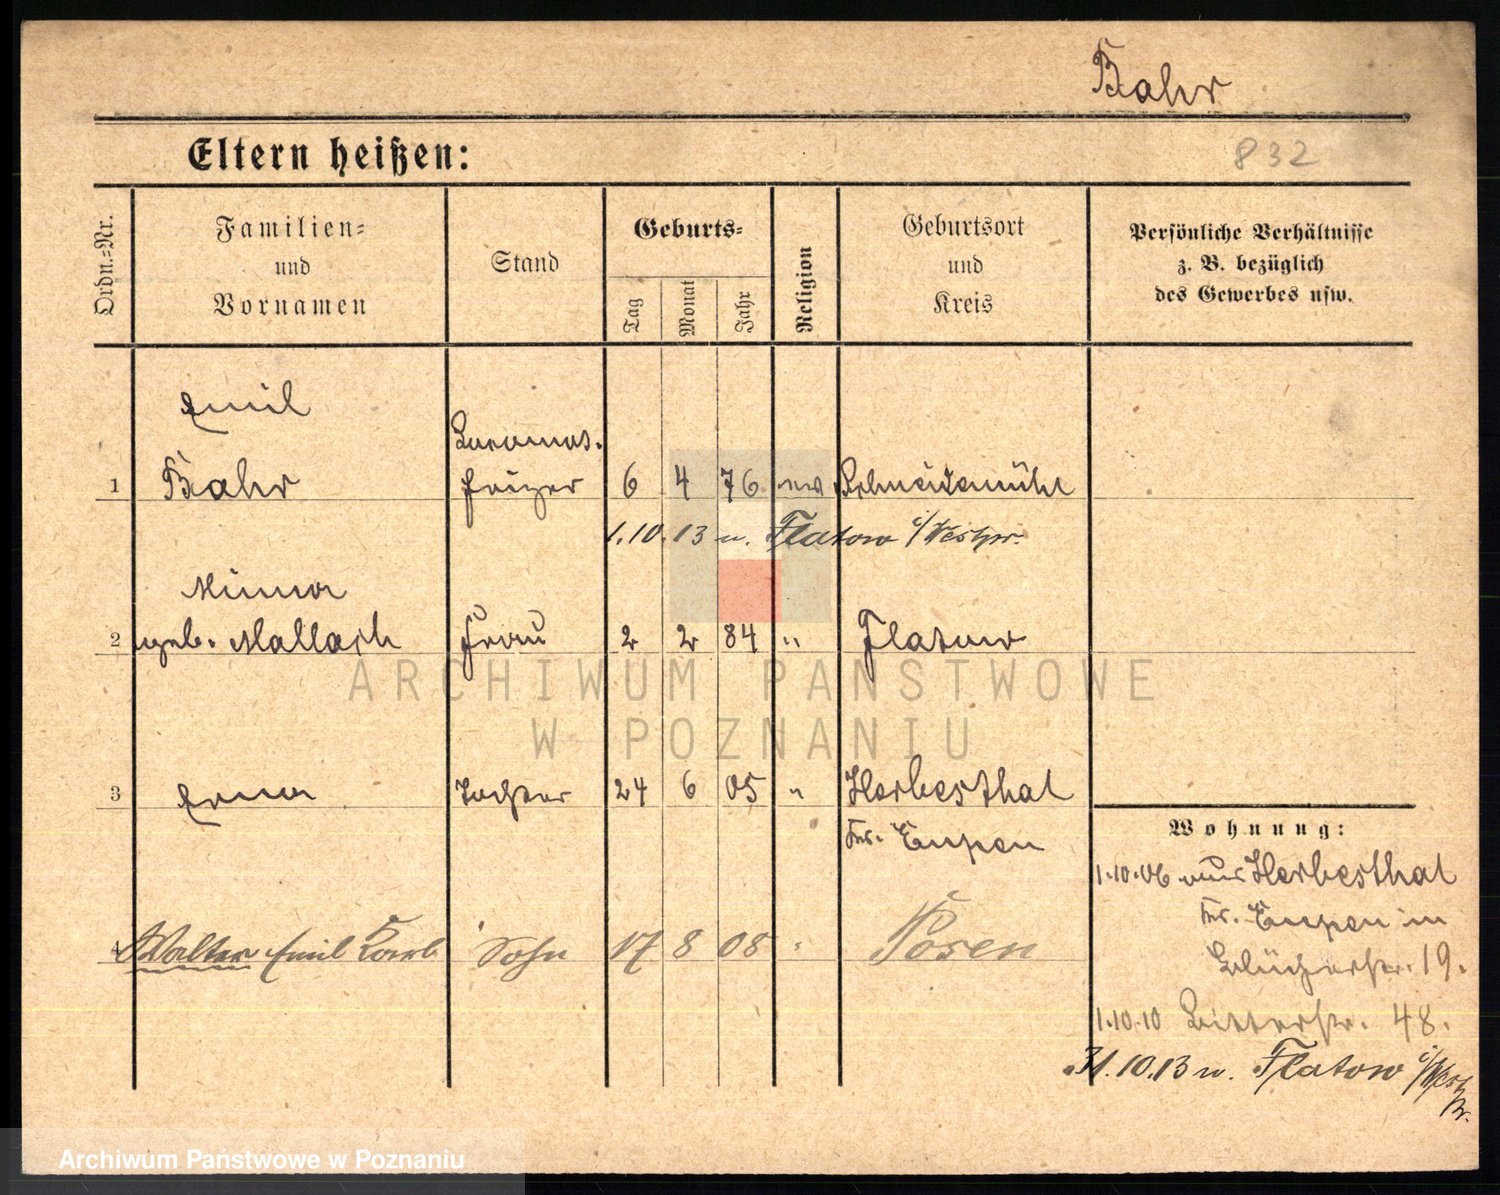 Bahr
Eltern heißen:
832
Ordn.-Nr.
Familien-
und
Vornamen
Stand
Geburts-
Tag
Monat
Jahr
Religion
Geburtsort
und
Kreis
Persönliche Verhältnisse
z. B. bezüglich
des Gewerbes usw.
Emil
Locomot.
1 Bahr heizer 6 4 76 ev Schneidemühl
1.10.13 n. Flatow i/Westpr.
Minna
2 geb. Mallach Frau 2 2 84 " Flatow
ARCHIWUM PAŃSTWOWE
W POZNANIU
3 Erna Tochter 24 6 05 " Herbesthal
Kr. Eupen
4 Walter Emil Karl Sohn 17 8 08 " Posen
Wohnung:
1.10.06 aus Herbesthal
Kr. Eupen in
Blücherstr. 19.
1.10.10 Ritterstr. 48.
31.10.13 n. Flatow i/Westpr.
Archiwum Państwowe w Poznaniu